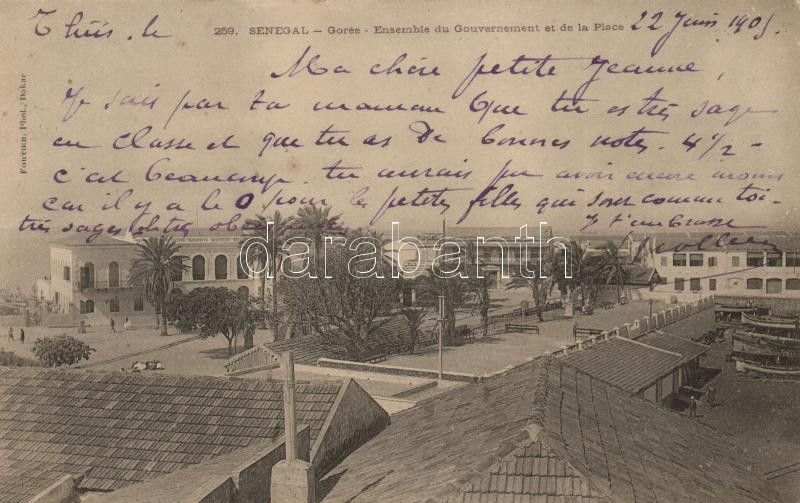 259. SENEGAL — Gorée - Ensemble du Gouvernement et de la Place
Thiès. le 22 Juin 1905.
Ma chère petite Jeanne,
Je sais par ta maman que tu es très sage
en classe et que tu as de bonnes notes. 4 1/2 -
c'est beaucoup. tu aurais pu avoir encore moins
car il y a le 0 pour les petites filles qui sont comme toi-
très sages et très
Je t'embrasse
FORTIER, Phot., Dakar
darabanth